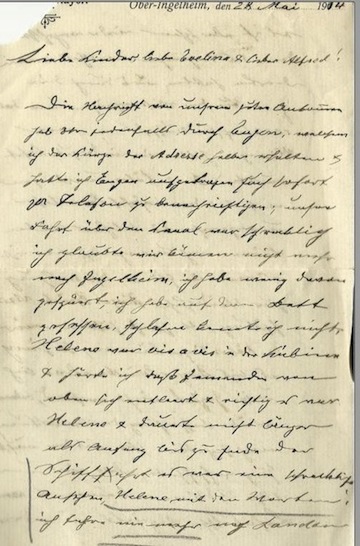 Ober-Ingelheim, den 28 Mai 1914
Liebe Kinder liebe Evelina & lieber Alfred!
Die Nachricht von unserm guten Ankommen
habt Ihr jedenfalls durch Eugen,
ich der Kürze der Adresse selber erhalten &
hatte ich Eugen aufgetragen Euch sofort
per Telefon zu benachrichtigen; unsere
Fahrt über den Kanal war schrecklich
ich glaubte wir kämen nicht mehr
nach Ingelheim, ich habe wenig davon
gespürt ich habe auf dem Bett
gesessen, schlafen konnte ich nicht
Helene war vis a vis in der Kabine
& hörte ich daß Jemanden von
oben sich entleert & richtig es war
Helene & dauerte nicht länger
als Anfang bis zu Ende der
Schifffahrt es war eine schreckliche
Helene mit den Worten!
ich fahre nie mehr nach London